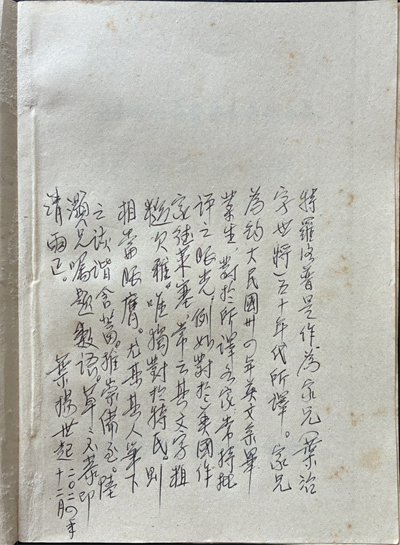 特羅洛普是作為家兄(葉治
字世將)五十年代所譯。家兄
為約大民國卅四年英文系畢
業生,對於所譯各家常持批
評之眼光,例如對於美國作
家德萊塞,常云其文字粗
糙欠雅。唯獨對於特氏則
相當服膺,尤其其人筆下
之詼諧含蓄,推崇備至。陸
灝兄囑題數語。草草不恭,即
請兩正。
葉揚世起
十二月